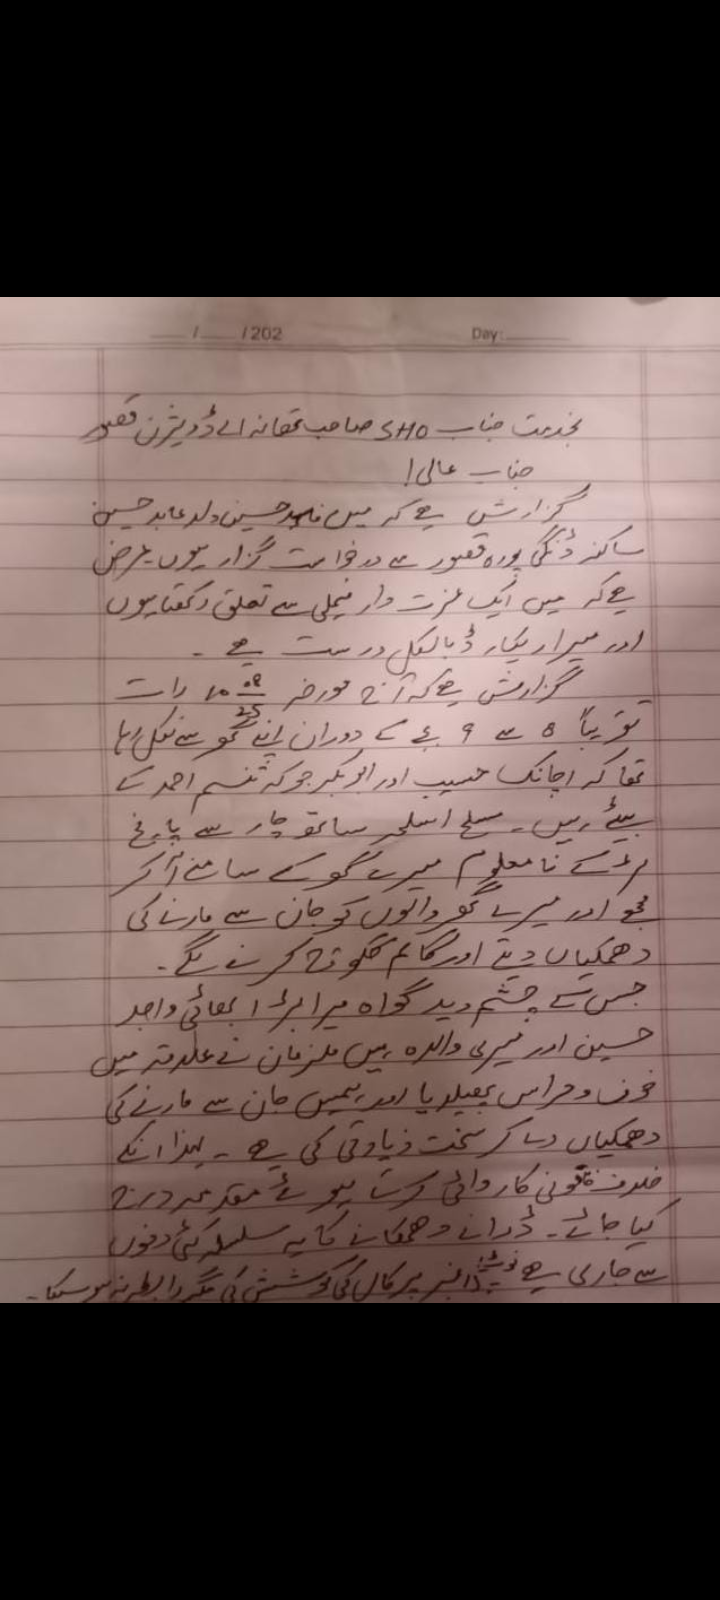 ___/___/202 Day:______
بخدمت جناب SHO صاحب تھانہ اے ڈویژن قصور
جناب عالی!
گزارش ہے کہ میں حسین ولد عابد حسین
ساکنہ پورہ قصور سے درخواست گزار ہوں۔ عرض
ہے کہ میں ایک عزت دار فیملی سے تعلق رکھتا ہوں
اور میرا ریکارڈ بالکل درست ہے۔
گزارش ہے کہ آج مورخہ رات
تقریباً 8 سے 9 بجے کے دوران اپنے گھر سے نکل رہا
تھا کہ اچانک حسیب اور ابوبکر جو کہ احمد کے
بیٹے ہیں۔ مسلح اسلحہ ساتھ چار سے پانچ
لڑکے نامعلوم میرے گھر کے سامنے آ کر
مجھے اور میرے گھر والوں کو جان سے مارنے کی
دھمکیاں دیتے اور گالم گلوچ کرنے لگے۔
جس کے چشم دید گواہ میرا بڑا بھائی واجد
حسین اور میری والدہ ہیں ملزمان نے علاقہ میں
خوف و حراس پھیلایا اور ہمیں جان سے مارنے کی
دھمکیاں دے کر سخت زیادتی کی ہے۔ لہذا انکے
خلاف قانونی کاروائی کرتے ہوئے مقدمہ درج
کیا جائے۔ ڈرانے دھمکانے کا یہ سلسلہ کئی دنوں
سے جاری ہے نمبر پر کال کی کوشش کی مگر رابطہ نہ ہو سکا۔